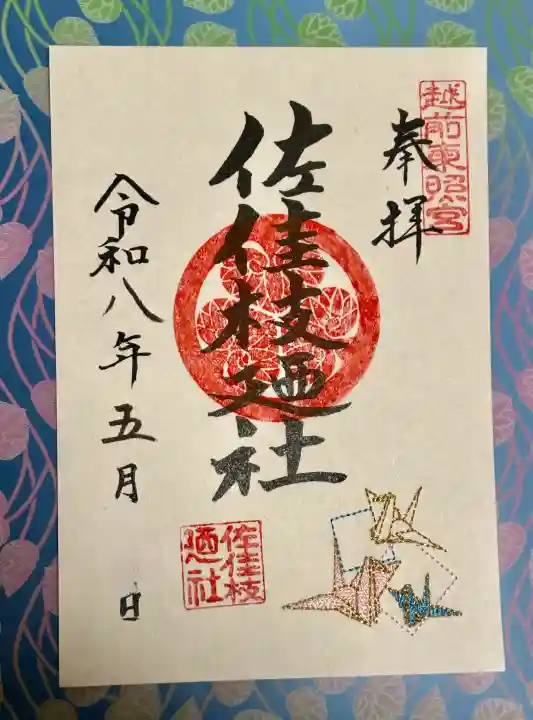 越前東照宮
奉拝
佐佳枝廼社
令和八年五月 日
佐佳枝
廼社